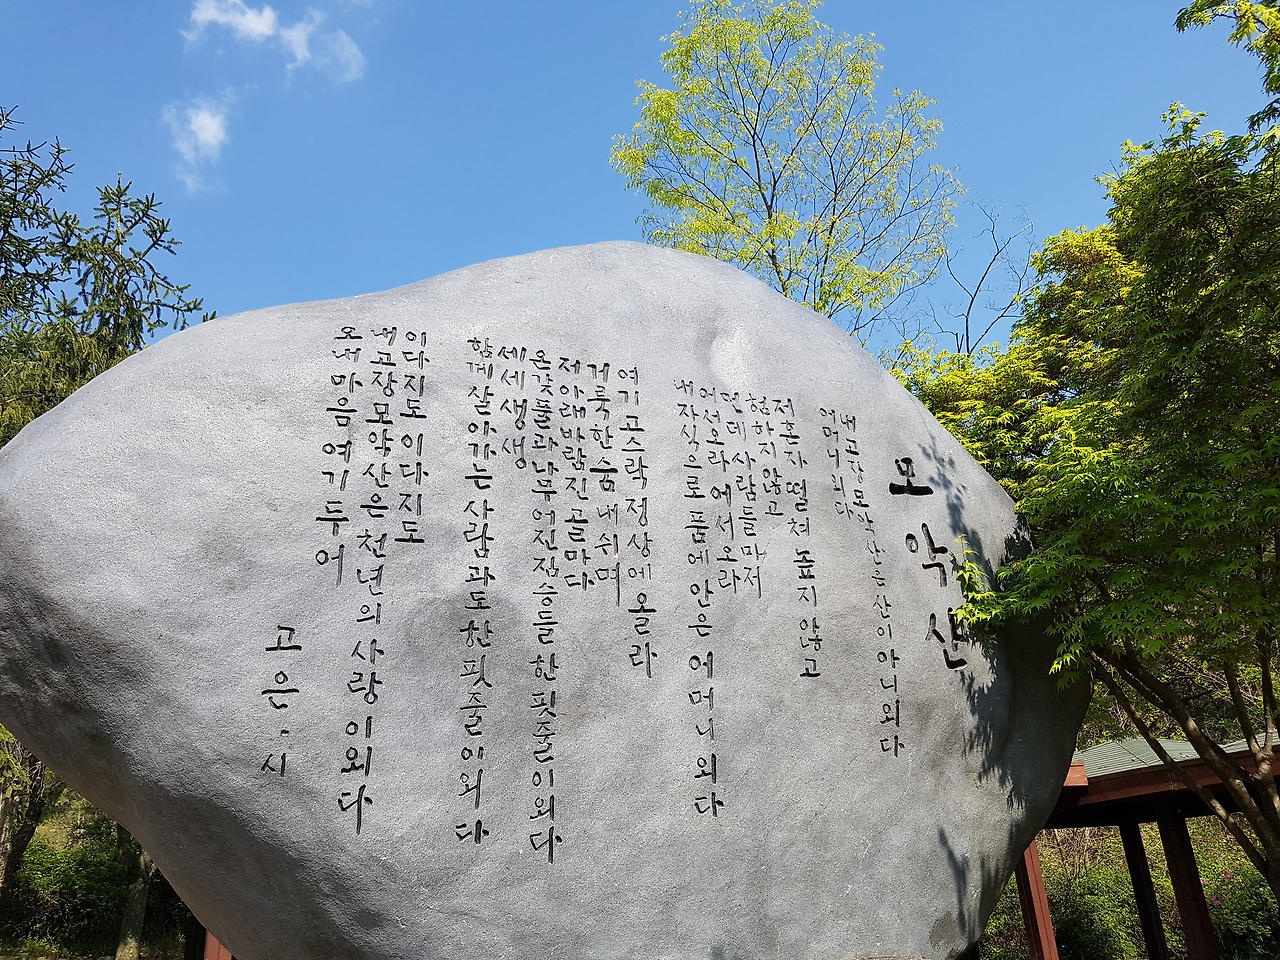 모악산
내고장모악산은산이아니외다
어머니외다
저혼자떨쳐높지않고
험하지않고
먼데사람들마저
어서오라에서오라
내자식으로품에안은어머니외다
여기고스락정상에올라
거룩한숨내쉬며
저아래바람진골마다
온갖풀과나무어진짐승들한핏줄이외다
세세생생
함께살아가는사람과도한핏줄이외다
이다지도이다지도
내고장모악산은천년의사랑이외다
오내마음여기두어
고은·시